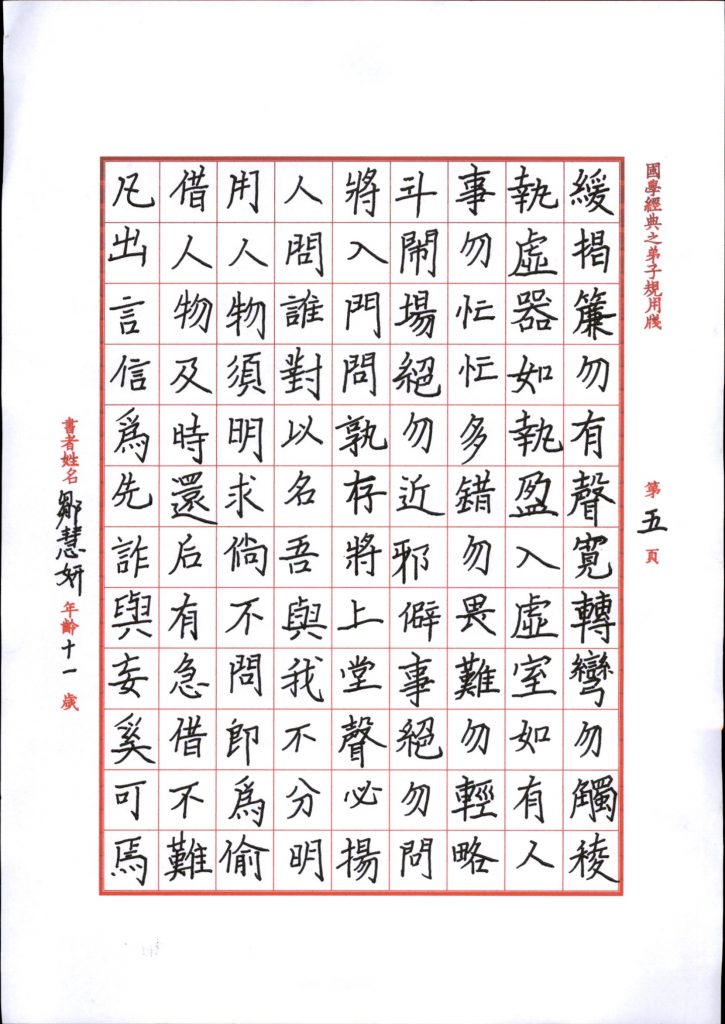 國學經典之弟子規用牋 第五頁
緩揭簾勿有聲寬轉彎勿觸稜
執虛器如執盈入虛室如有人
事勿忙忙多錯勿畏難勿輕略
斗鬧場絕勿近邪僻事絕勿問
將入門問孰存將上堂聲必揚
人問誰對以名吾與我不分明
用人物須明求倘不問即爲偷
借人物及時還后有急借不難
凡出言信爲先詐與妄奚可焉
書者姓名鄒慧妍年齡十一歲